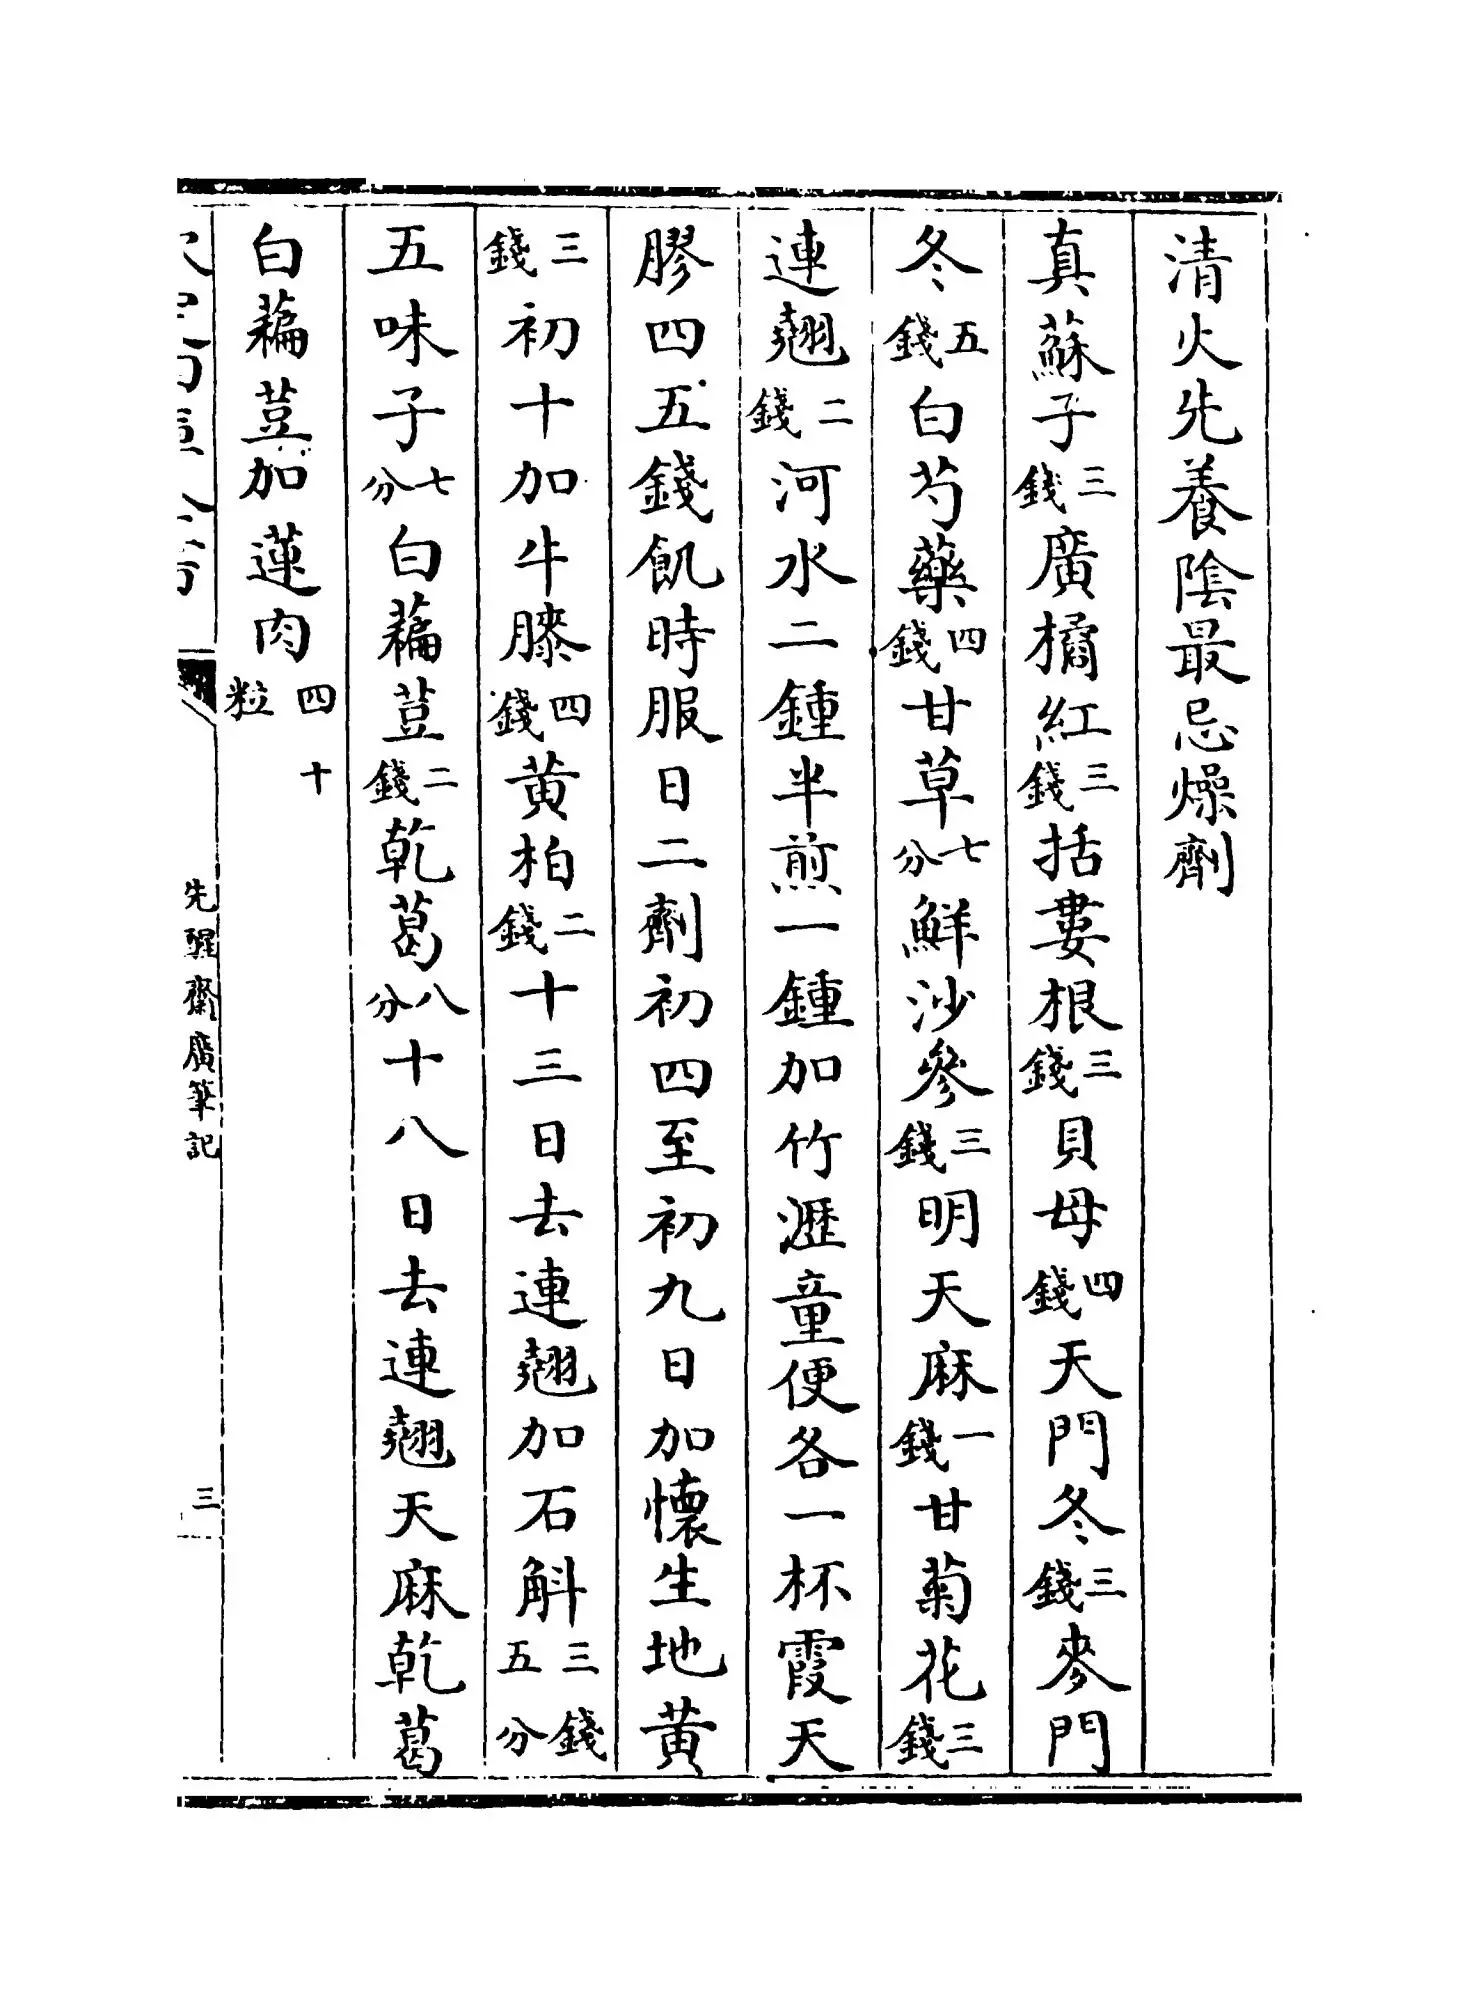 清火先養陰最忌燥劑
真蘇子三錢廣橘紅三錢括蔞根三錢貝母四錢天門冬三錢麥門
冬五錢白芍藥四錢甘草七分鮮沙參三錢明天麻一錢甘菊花三錢
連翹二錢河水二鍾半煎一鍾加竹瀝童便各一杯霞天
膠四五錢飢時服日二劑初四至初九日加懷生地黄
三錢初十加牛膝四錢黄柏二錢十三日去連翹加石斛三錢五分
五味子七分白藊荳二錢乾葛八分十八日去連翹天麻乾葛
白藊荳加蓮肉四十粒
先醒齋廣筆記
三